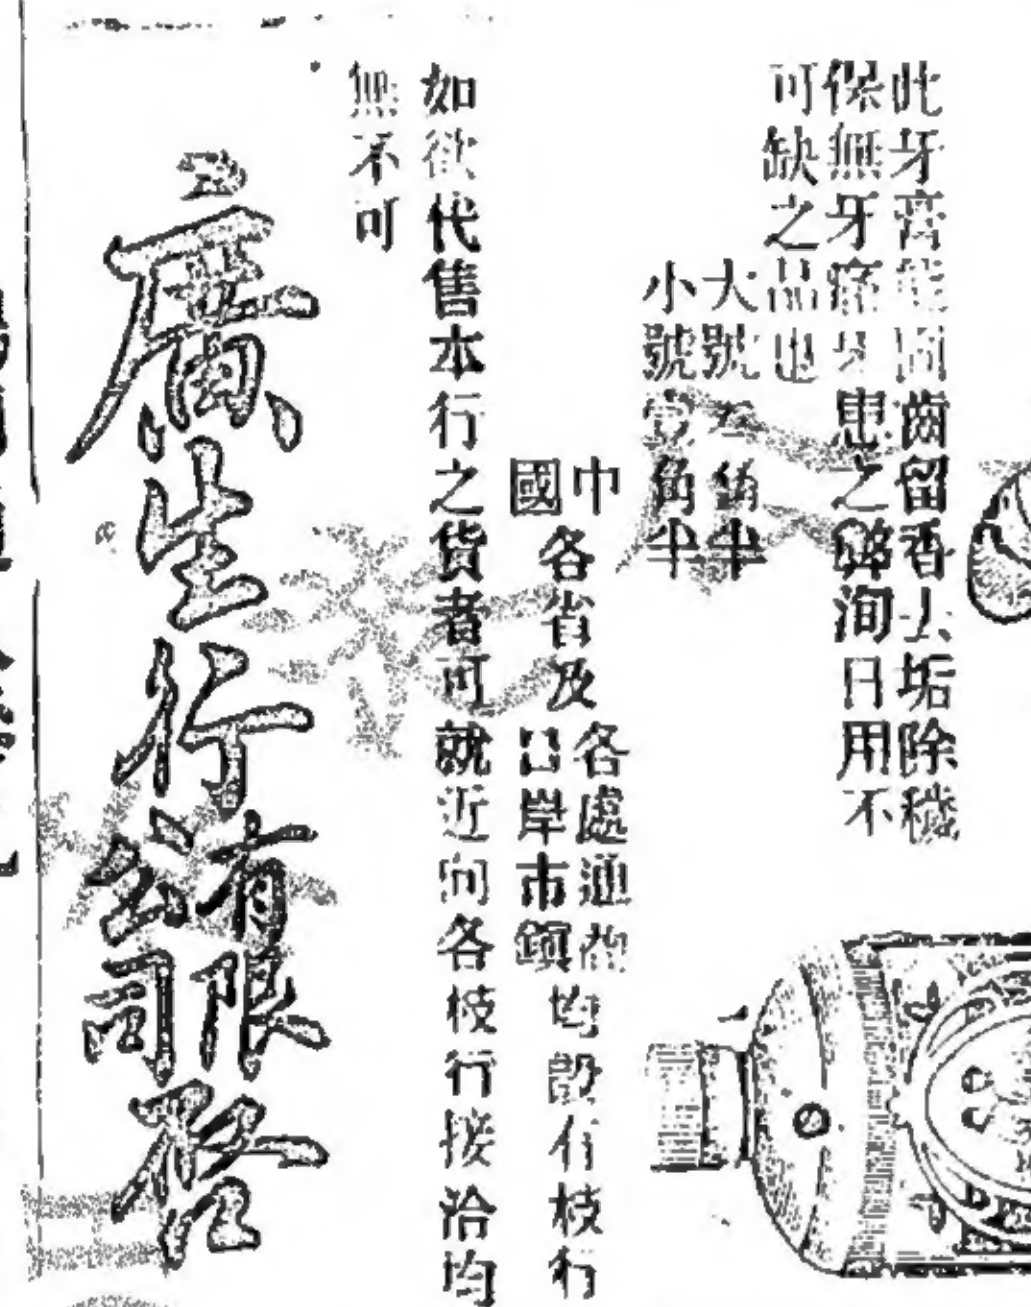 此牙膏能固齒留香去垢除穢
保無牙痛牙患之弊洵日用不
可缺之品也
大號角半
小號角半
中國各省及各處通商口岸市鎮均設有枝行
如欲代售本行之貨者可就近向各枝行接洽均
無不可
廣生行有限公司啓